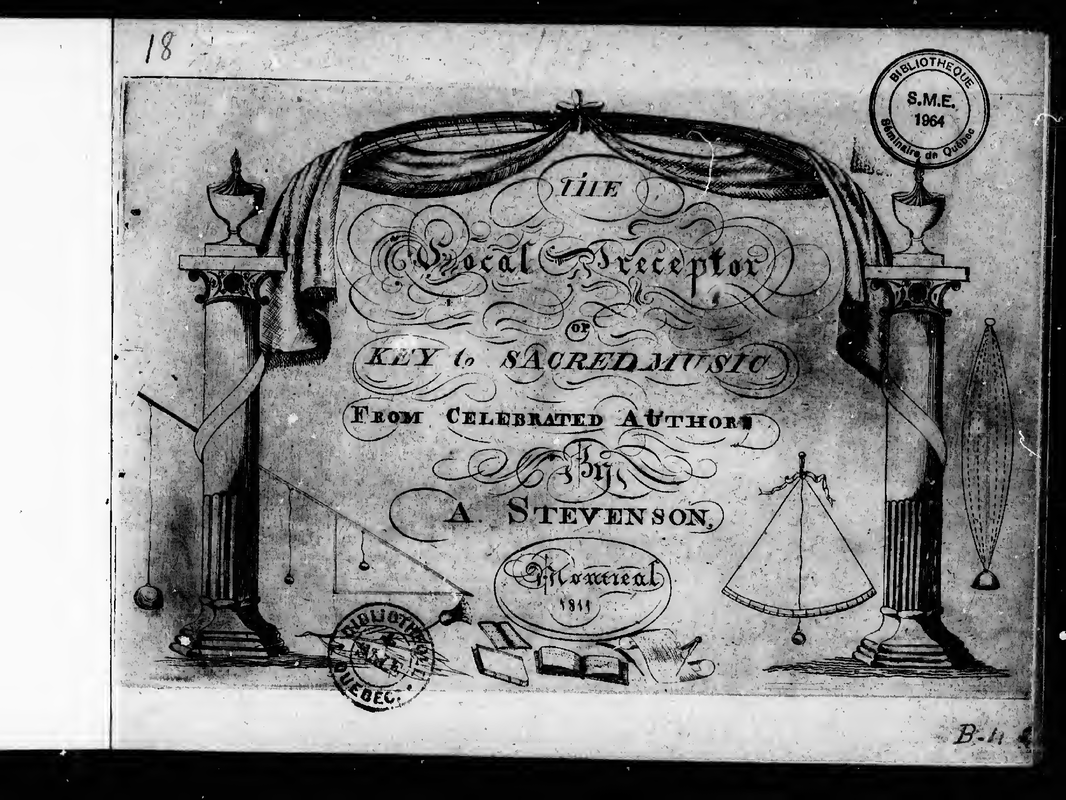 18
BIBLIOTHEQUE
S.M.E.
1964
Séminaire de Québec
THE
Vocal Preceptor
OR
KEY to SACRED MUSIC
FROM CELEBRATED AUTHORS
By
A STEVENSON,
Montreal
1811
QUEBEC.